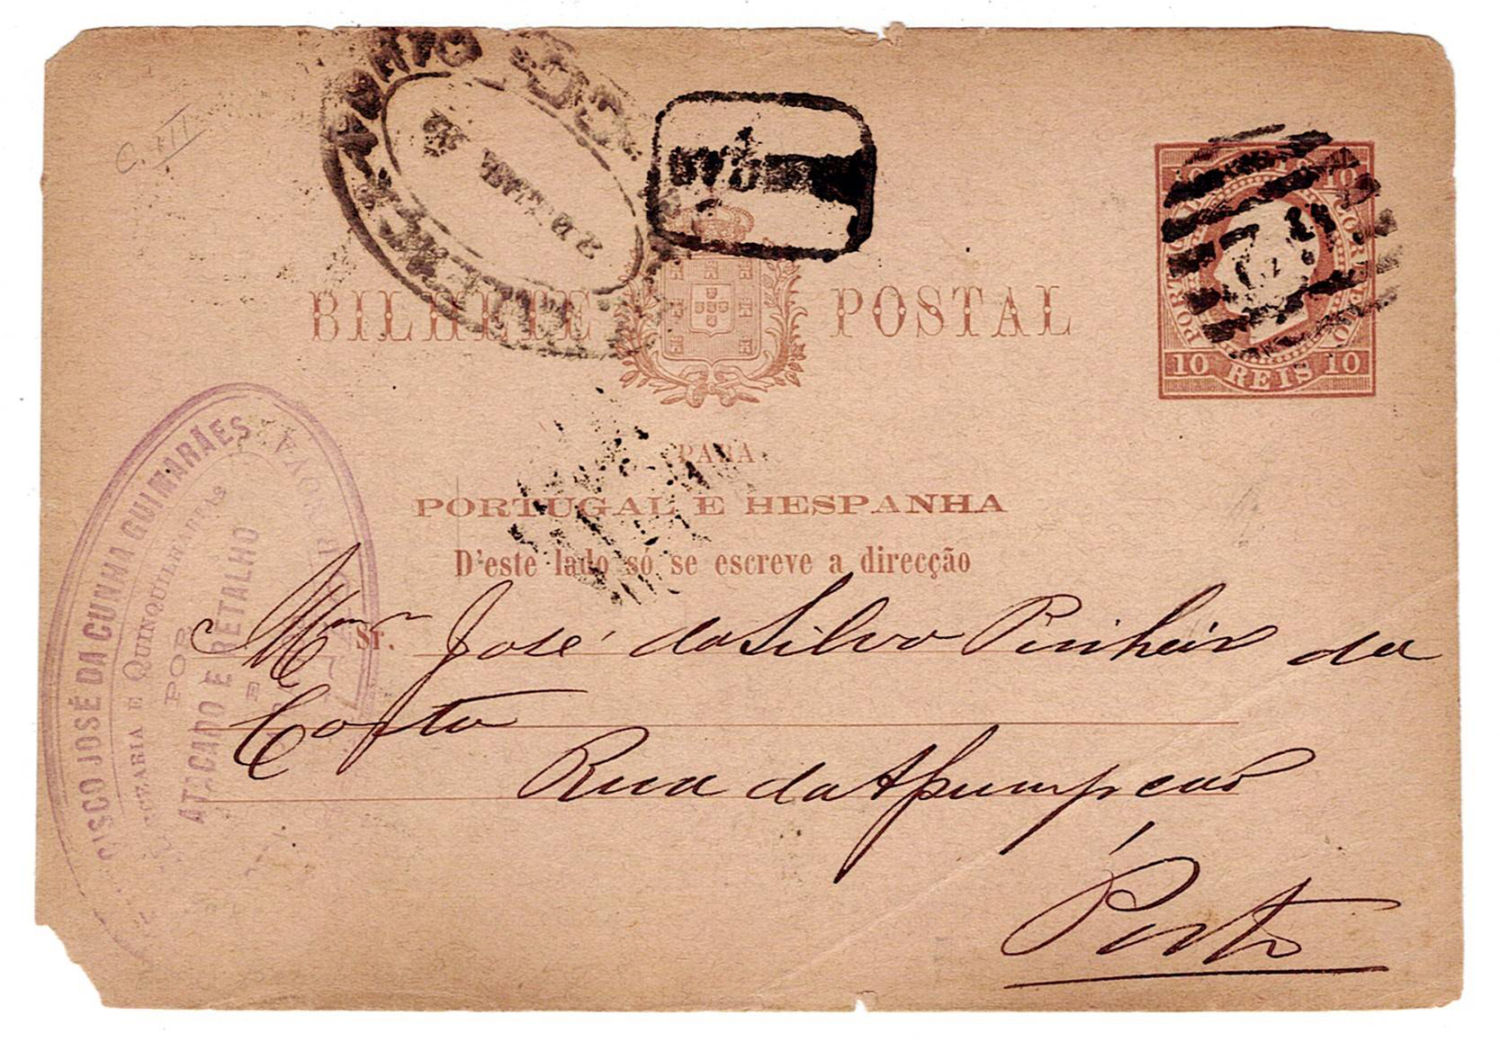 C. III
BILHETE POSTAL
PARA
PORTUGAL E HESPANHA
D'este lado só se escreve a direcção
10 REIS 10
Mmo Sr. José da Silva Pinheiro da
Costa
Rua da Assumpção
Porto
CISCO JOSÉ DA CUNHA GUIMARÃES
E QUINQUILHARIAS
POR
ATACADO E RETALHO